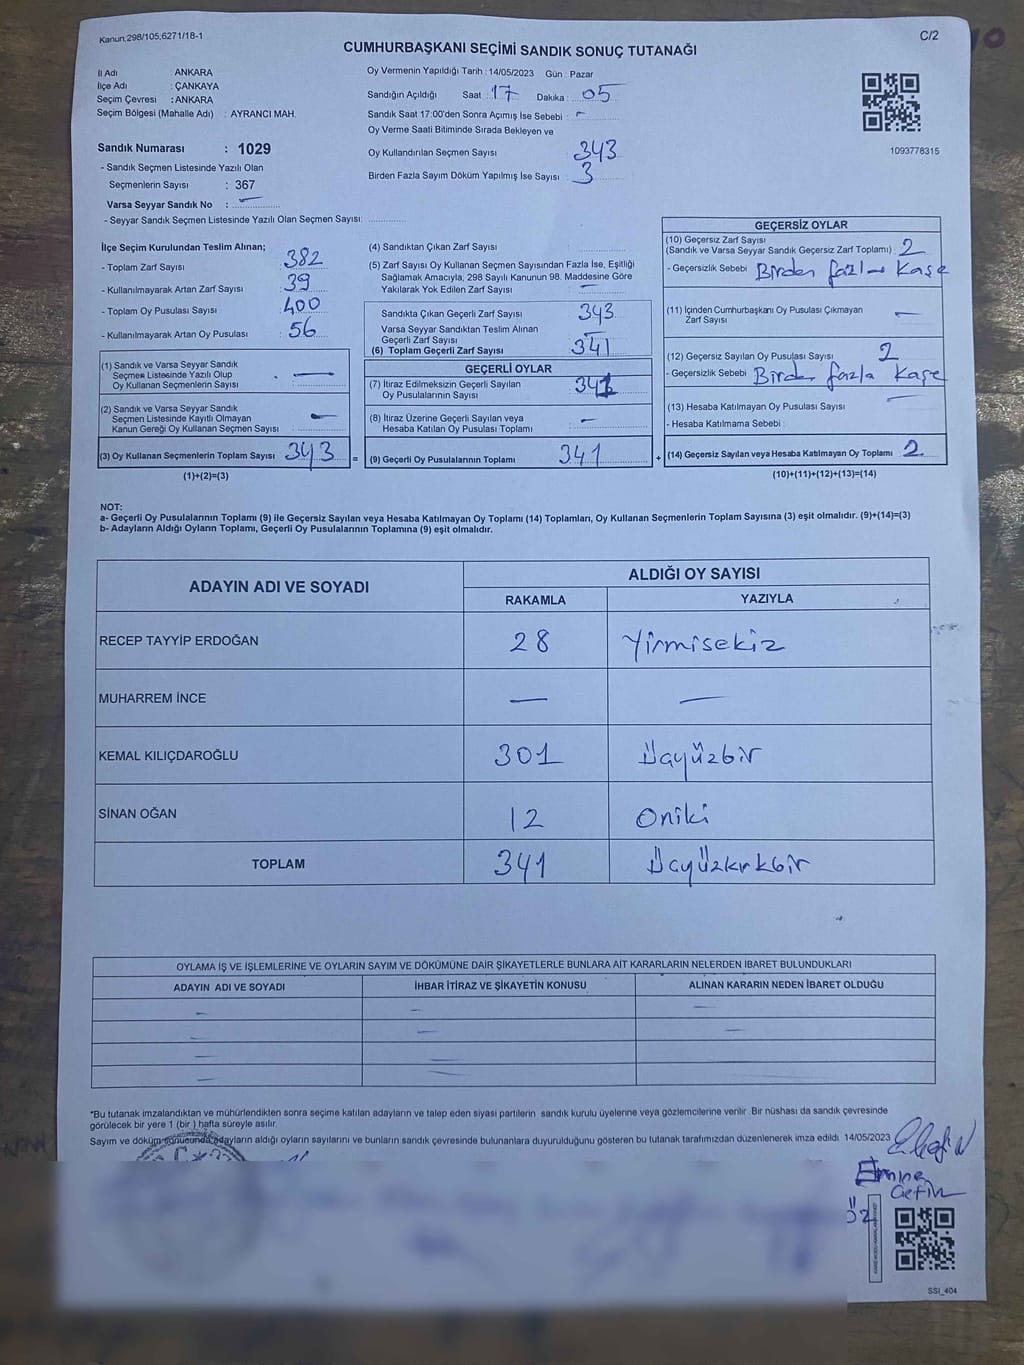 Kanun;298/105;6271/18-1
C/2
CUMHURBAŞKANI SEÇİMİ SANDIK SONUÇ TUTANAĞI
İl Adı : ANKARA
İlçe Adı : ÇANKAYA
Seçim Çevresi : ANKARA
Seçim Bölgesi (Mahalle Adı) : AYRANCI MAH.
Sandık Numarası : 1029
- Sandık Seçmen Listesinde Yazılı Olan
Seçmenlerin Sayısı : 367
Varsa Seyyar Sandık No : —
- Seyyar Sandık Seçmen Listesinde Yazılı Olan Seçmen Sayısı:
Oy Vermenin Yapıldığı Tarih : 14/05/2023 Gün : Pazar
Sandığın Açıldığı Saat : 17 Dakika : 05
Sandık Saat 17:00'den Sonra Açımış İse Sebebi : -
Oy Verme Saati Bitiminde Sırada Bekleyen ve
Oy Kullandırılan Seçmen Sayısı 343
Birden Fazla Sayım Döküm Yapılmış İse Sayısı : 3
1093778315
İlçe Seçim Kurulundan Teslim Alınan;
- Toplam Zarf Sayısı 382
- Kullanılmayarak Artan Zarf Sayısı 39
- Toplam Oy Pusulası Sayısı 400
- Kullanılmayarak Artan Oy Pusulası 56
(1) Sandık ve Varsa Seyyar Sandık
Seçmen Listesinde Yazılı Olup
Oy Kullanan Seçmenlerin Sayısı : —
(2) Sandık ve Varsa Seyyar Sandık
Seçmen Listesinde Kayıtlı Olmayan
Kanun Gereği Oy Kullanan Seçmen Sayısı : —
(3) Oy Kullanan Seçmenlerin Toplam Sayısı 343 =
(1)+(2)=(3)
(4) Sandıktan Çıkan Zarf Sayısı
(5) Zarf Sayısı Oy Kullanan Seçmen Sayısından Fazla İse, Eşitliği
Sağlamak Amacıyla, 298 Sayılı Kanunun 98. Maddesine Göre
Yakılarak Yok Edilen Zarf Sayısı —
Sandıkta Çıkan Geçerli Zarf Sayısı 343
Varsa Seyyar Sandıktan Teslim Alınan
Geçerli Zarf Sayısı —
(6) Toplam Geçerli Zarf Sayısı 341
GEÇERLİ OYLAR
(7) İtiraz Edilmeksizin Geçerli Sayılan
Oy Pusulalarının Sayısı 341
(8) İtiraz Üzerine Geçerli Sayılan veya
Hesaba Katılan Oy Pusulası Toplamı : —
(9) Geçerli Oy Pusulalarının Toplamı 341 +
GEÇERSİZ OYLAR
(10) Geçersiz Zarf Sayısı
(Sandık ve Varsa Seyyar Sandık Geçersiz Zarf Toplamı) : 2
- Geçersizlik Sebebi Birden fazla Kaşe
(11) İçinden Cumhurbaşkanı Oy Pusulası Çıkmayan
Zarf Sayısı —
(12) Geçersiz Sayılan Oy Pusulası Sayısı 2
- Geçersizlik Sebebi Birden fazla Kaşe
(13) Hesaba Katılmayan Oy Pusulası Sayısı —
- Hesaba Katılmama Sebebi
(14) Geçersiz Sayılan veya Hesaba Katılmayan Oy Toplamı : 2
(10)+(11)+(12)+(13)=(14)
NOT:
a- Geçerli Oy Pusulalarının Toplamı (9) ile Geçersiz Sayılan veya Hesaba Katılmayan Oy Toplamı (14) Toplamları, Oy Kullanan Seçmenlerin Toplam Sayısına (3) eşit olmalıdır. (9)+(14)=(3)
b- Adayların Aldığı Oyların Toplamı, Geçerli Oy Pusulalarının Toplamına (9) eşit olmalıdır.
ADAYIN ADI VE SOYADI ALDIĞI OY SAYISI
RAKAMLA YAZIYLA
RECEP TAYYİP ERDOĞAN 28 Yirmisekiz
MUHARREM İNCE — —
KEMAL KILIÇDAROĞLU 301 Üçyüzbir
SİNAN OĞAN 12 Oniki
TOPLAM 341 Üçyüzkırkbir
OYLAMA İŞ VE İŞLEMLERİNE VE OYLARIN SAYIM VE DÖKÜMÜNE DAİR ŞİKAYETLERLE BUNLARA AİT KARARLARIN NELERDEN İBARET BULUNDUKLARI
ADAYIN ADI VE SOYADI İHBAR İTİRAZ VE ŞİKAYETİN KONUSU ALINAN KARARIN NEDEN İBARET OLDUĞU
*Bu tutanak imzalandıktan ve mühürlendikten sonra seçime katılan adayların ve talep eden siyasi partilerin sandık kurulu üyelerine veya gözlemcilerine verilir. Bir nüshası da sandık çevresinde
görülecek bir yere 1 (bir) hafta süreyle asılır.
Sayım ve döküm sonucunda adayların aldığı oyların sayılarını ve bunların sandık çevresinde bulunanlara duyurulduğunu gösteren bu tutanak tarafımızdan düzenlenerek imza edildi. 14/05/2023
Emine
Çetin
SSI_404